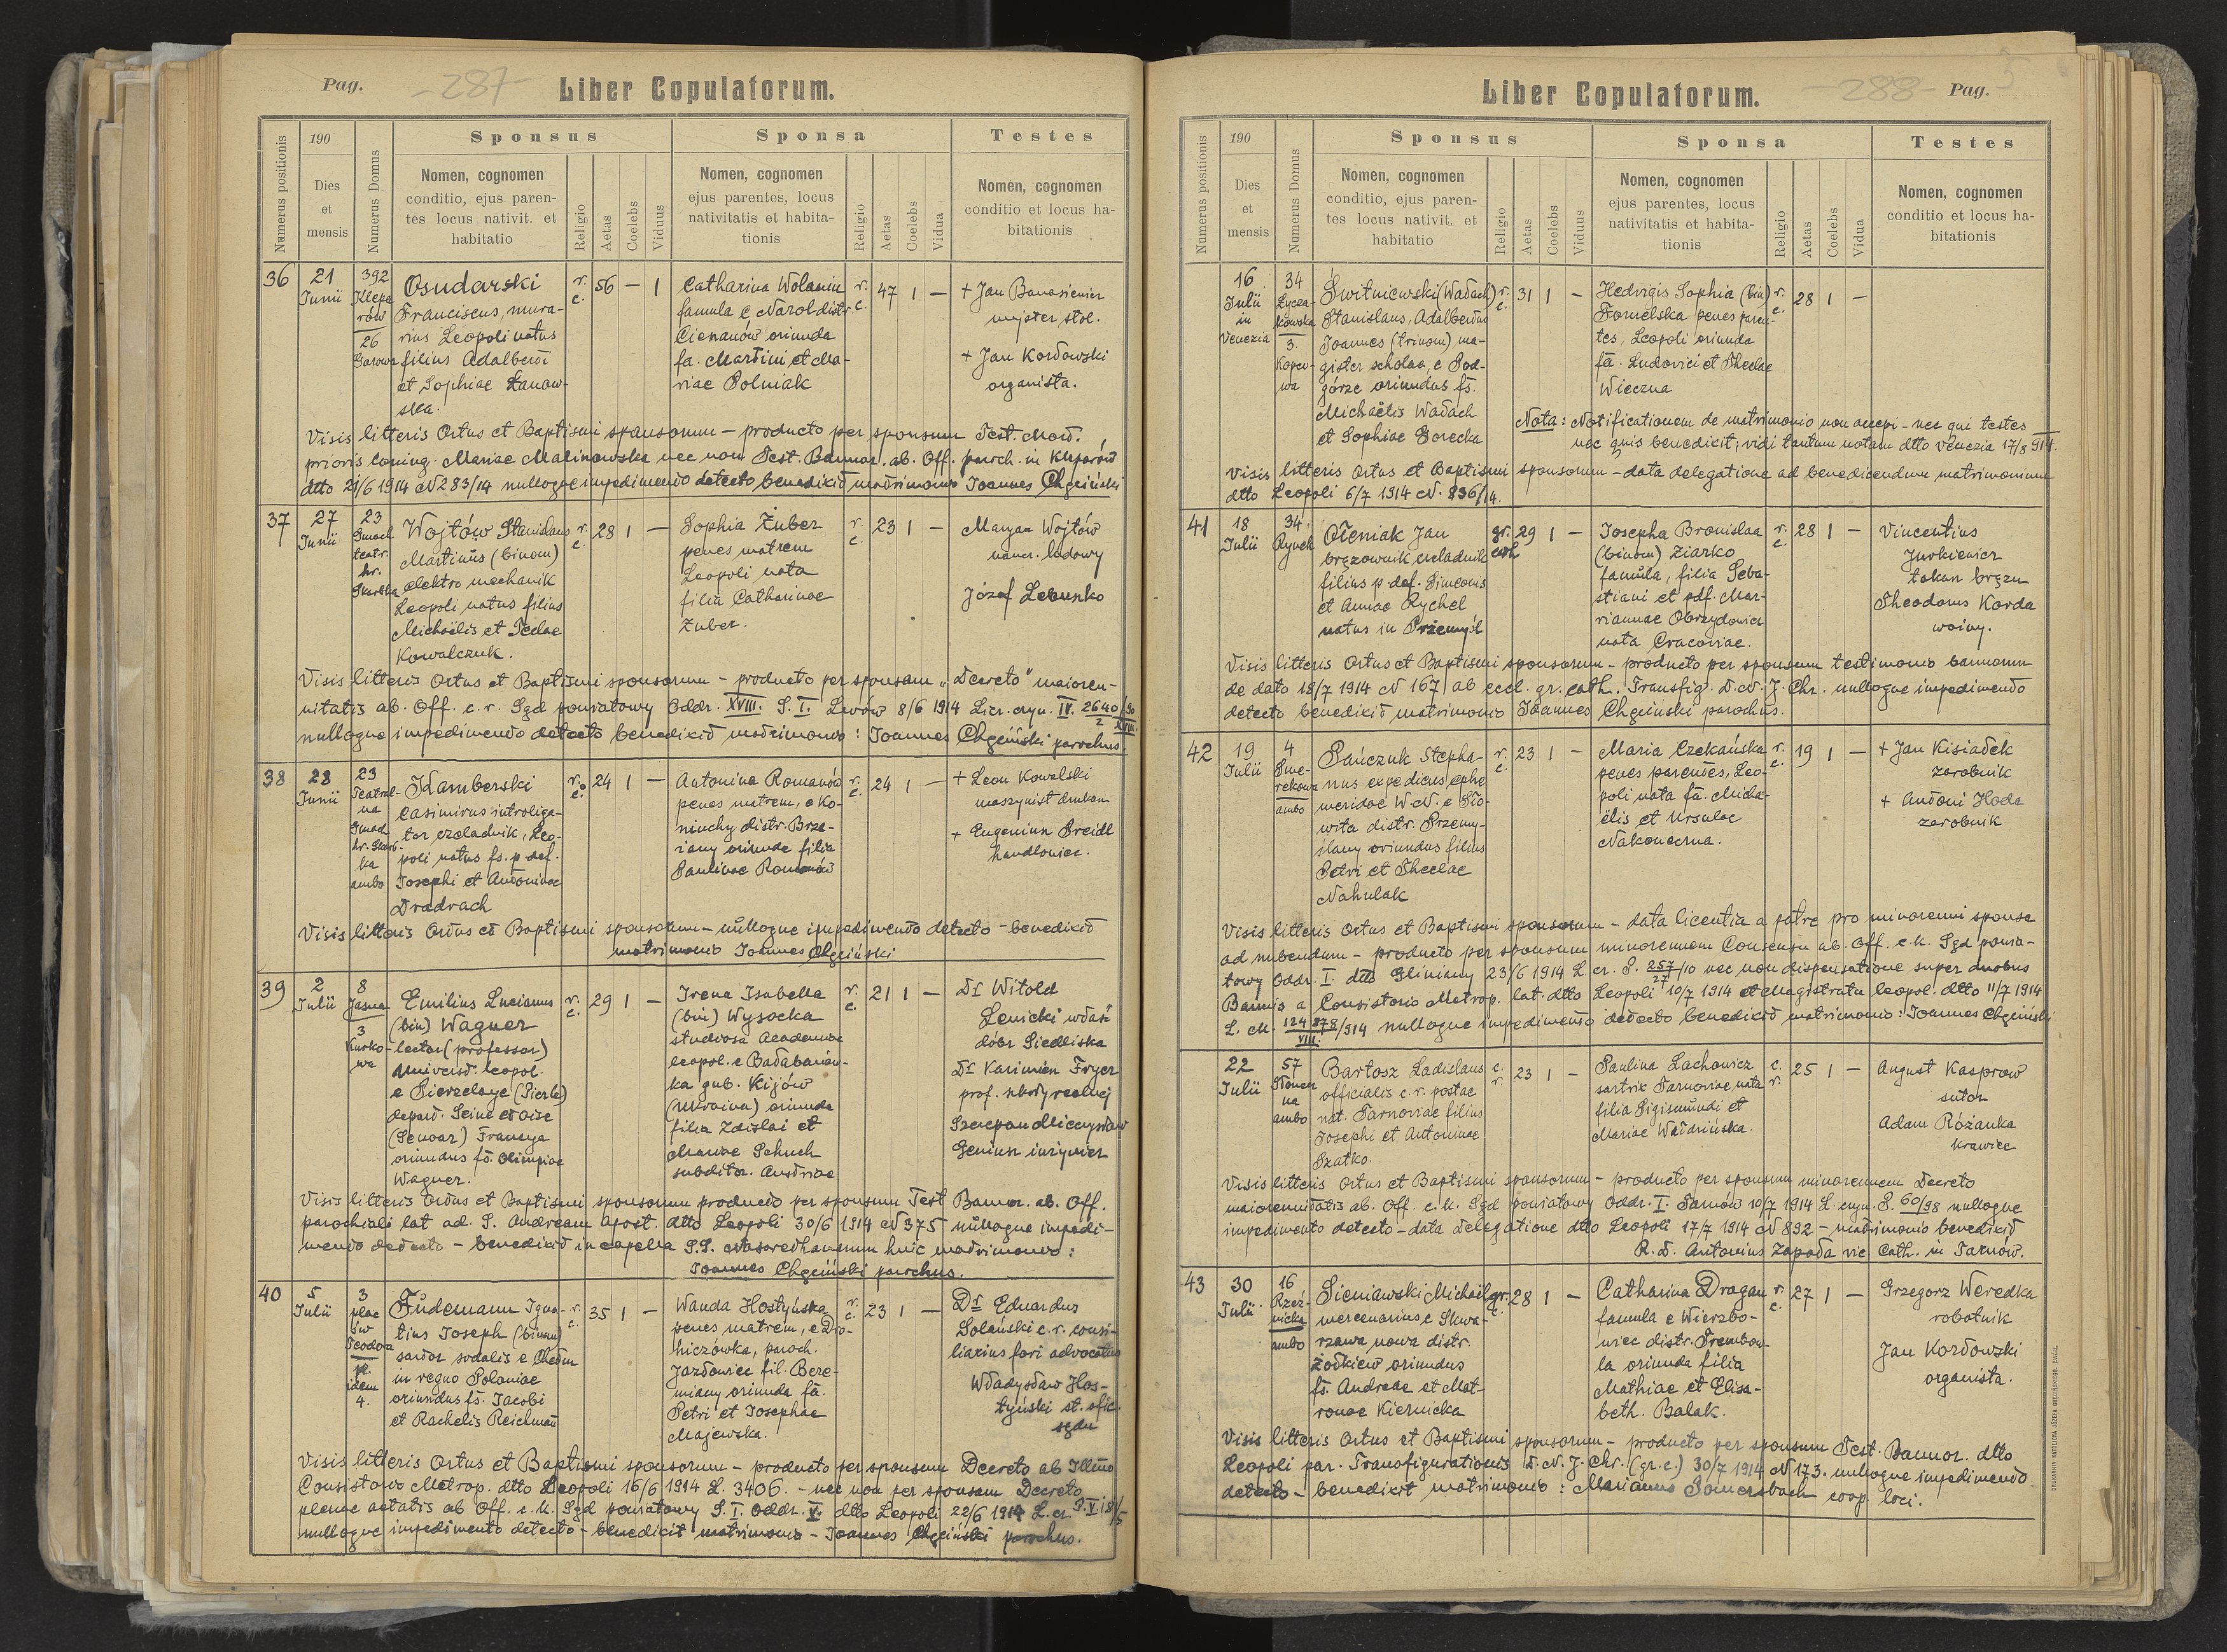 Pag. -287- Liber Copulatorum.
Numerus positionis
190
Dies
et
mensis
Numerus Domus
Sponsus
Nomen, cognomen
conditio, ejus paren-
tes locus nativit. et
habitatio
Religio
Aetas
Coelebs
Viduus
Sponsa
Nomen, cognomen
ejus parentes, locus
nativitatis et habita-
tionis
Religio
Aetas
Coelebs
Vidua
Testes
Nomen, cognomen
conditio et locus ha-
bitationis
36
21
Junii
392
Klepa
rów
26
Franciscus, mura-
Osudarski
Franciscus, mura-
rius Leopoli natus
filius Adalberti
et Sophiae Łanow-
ska.
r.
c.
56 — 1
Catharina Wolanin
famula e Narol distr.
Cieszanów oriunda
fa. Martini et Ma-
riae Polniak
r.
c.
47 1 —
+ Jan Banasiewicz
majster stol.
+ Jan Kordowski
organista.
Visis litteris Ortus et Baptismi sponsorum — producto per sponsum Test. Mort.
prioris coniug. Mariae Malinowska nec non Test. Bannor. ab. Off. paroch. in Kleparów
dtto 21/6 1914 N 283/14 nulloque impedimento detecto benedixit matrimonio Joannes Chęciński
37
27
Junii
23
Gmach
teatr.
hr.
Skarbka
Wojtów Stanislaus
Martinus (binom)
elektro mechanik
Leopoli natus filius
Michaëlis et Teclae
Kowalczuk.
r.
c.
28 1 —
Sophia Żuber
penes matrem
Leopoli nata
filia Catharinae
Żuber.
r.
c.
23 1 —
Maryan Wojtów
naucz. ludowy
Józef
Visis litteris Ortus et Baptismi sponsorum — producto per sponsam „Decreto" maioren-
nitatis ab. Off. c. r. Sąd powiatowy Oddz. XVIII. S. I. Lwów 8/6 1914 Licz. czyn. IV. 2640/90
2 XVIII.
nulloque impedimento detecto benedixit matrimonio: Joannes Chęciński parochus.
38
28
Junii
23
Teatral-
na
Gmach
hr. Skarb-
ka
ambo
Kamberski
Casimirus introliga-
tor czeladnik, Leo-
poli natus fs. p. def.
Josephi et Antoninae
Dradrach
r.
c.
24 1 —
Antonina Romanów
penes matrem, e Ko-
niuchy distr. Brze-
żany oriunda filia
Paulinae Romanów
r.
c.
24 1 —
+ Leon Kowalski
maszynist drukarn
+ Eugeniusz Breidl
handlowiec.
Visis litteris Ortus et Baptismi sponsorum — nulloque impedimento detecto — benedixit
matrimonio Joannes Chęciński
39
2
Julii
8
Jasna
3
Kurko-
wa
Emilius Lucianus
(bin) Wagner
lector (professor)
Universit. leopol.
e Pierrelaye (Pierle)
depart. Seine et Oise
Francya
oriundus fs. Olimpiae
Wagner.
r.
c.
29 1 —
Irena Isabella
(bin) Wysocka
studiosa Academiae
leopol. e Bałabanów-
ka gub. Kijów
(Ukraina) oriunda
filia Zdislai et
Mariae Schuch
subditor. Austriae
r.
c.
21 1 —
Dr Witold
Lenicki właś
dóbr Siedliska
Dr Kazimierz Fryer
prof. szkoły realnej
Szczepan Mieczysław
Geniusz inżynier
Visis litteris Ortus et Baptismi sponsorum producto per sponsum Test Bannor. ab. Off.
parochiali lat ad. S. Andream Apost. dtto Leopoli 30/6 1914 N 375 nulloque impedi-
mento detecto — benedixit in capella S.S. Nasarethanarum huic matrimonio:
Joannes Chęciński parochus.
40
5
Julii
3
plac
św
Teodora
pl.
idem
4.
Fudemann Igna-
tius Joseph (binom)
sartor sodalis e Chełm
in regno Poloniae
oriundus fs. Jacobi
et Rachelis Reichman
r.
c.
35 1 —
Wanda Hostyńska
penes matrem, e Dro-
hiczówka, paroch.
Jazłowiec fil. Bere-
miany oriunda fa.
Petri et Josephae
Majewska.
r.
c.
23 1 —
Dr Eduardus
Solański c. r. consi-
liarius fori advocatus
Władysław Hos-
tyński st. ofic.
sądu
Visis litteris Ortus et Baptismi sponsorum — producto per sponsum Decreto ab Illmo
Consistorio Metrop. dtto Leopoli 16/6 1914 L. 3406. — nec non per sponsam Decreto
plenae aetatis ab Off. c. k. Sąd powiatowy S. I. Oddz. V. dtto Leopoli 22/6 1914 L. cz. P. V. 18/5
nulloque impedimento detecto — benedicit matrimonio — Joannes Chęciński parochus.
Liber Copulatorum. -288- Pag.
Numerus positionis
190
Dies
et
mensis
Numerus Domus
Sponsus
Nomen, cognomen
conditio, ejus paren-
tes locus nativit. et
habitatio
Religio
Aetas
Coelebs
Viduus
Sponsa
Nomen, cognomen
ejus parentes, locus
nativitatis et habita-
tionis
Religio
Aetas
Coelebs
Vidua
Testes
Nomen, cognomen
conditio et locus ha-
bitationis
16
Julii
in
Venezia
34
Łycza-
kowska
3.
Koper-
wa
Świtniewski (Wałach)
Stanislaus, Adalbertus
Joannes (trinom) ma-
gister scholae, e Pod-
górze oriundus fs.
Michaëlis Wałach
et Sophiae Gorecka
r.
c.
31 1 —
Hedvigis Sophia (bin)
Fornelska penes paren-
tes, Leopoli oriunda
fa. Ludovici et Theclae
Wieczna
r.
c.
28 1 —
Nota: Notificationem de matrimonio non accepi — nec qui testes
nec quis benedixit; vidi tantum notam dtto Venezia 17/8 914.
Visis litteris Ortus et Baptismi sponsorum — data delegatione ad benedicendum matrimonium
dtto Leopoli 6/7 1914 N. 836/14.
41
18
Julii
34
Rynek
Oleniak Jan
brązownik czeladnik
filius p. def. Simeonis
et Annae Rychel
natus in Przemyśl
gr.
cath
29 1 —
Josepha Bronislaa
(binom) Ziarko
famula, filia Seba-
stiani et pdf. Mar-
riannae Obrzydowicz
nata Cracoviae.
r.
c.
28 1 —
Vincentius
Jurkiewicz
tokarz brązu
Theodorus Korda
woźny.
Visis litteris Ortus et Baptismi sponsorum — producto per sponsum testimonio bannorum
de dato 18/7 1914 N 167 ab eccl. gr. cath. Transfig. D. N. J. Chr. nulloque impedimento
detecto benedixit matrimonio Joannes Chęciński parochus.
42
19
Julii
4
Śnie-
rekowa
ambo
Pańczuk Stepha-
nus expediens ephe
meridae W. N. e Pło-
wita distr. Przemy-
ślany oriundus filius
Petri et Theclae
Nahulak
r.
c.
23 1 —
Maria Czekańska
penes parentes, Leo-
poli nata fa. Micha-
ëlis et Ursulae
Nakoneczna.
r.
c.
19 1 —
+ Jan Kisiałek
zarobnik
+ Antoni Hoda
zarobnik
Visis litteris Ortus et Baptismi sponsorum — data licentia a patre pro minorenni sponsa
ad nubendum — producto per sponsum minorennem Consensu ab. Off. c. k. Sąd powia-
towy Oddz. I. dtto Gliniany 23/6 1914 L. cz. P. 257/10 nec non dispensatione super duobus
27
Bannis a Consistorio Metrop. lat. dtto Leopoli 10/7 1914 et Magistratu leopol. dtto 11/7 1914
L. M. 124 878/914 nulloque impedimento detecto benedixit matrimonio: Joannes Chęciński
VIII.
22
Julii
57
Słonecz
na
ambo
Bartosz Ladislaus
officialis c. r. postae
nat. Tarnoviae filius
Josephi et Antoninae
Szatko.
c.
r.
23 1 —
Paulina Lachowicz
sartrix Tarnoviae nata
filia Sigismundi et
Mariae
c.
r.
25 1 —
August Kasprow
sutor
Adam Różanka
krawiec
Visis litteris Ortus et Baptismi sponsorum — producto per sponsum minorennem Decreto
maiorennitatis ab. Off. c. k. Sąd powiatowy Oddz. I. Tarnów 10/7 1914 L. czyn. P. 60/98 nulloque
impedimento detecto — data delegatione dtto Leopoli 17/7 1914 N 892 — matrimonio benedixit
R. D. Antonius Zapała vic Cath. in Tarnów.
43
30
Julii
16
Rzeź-
nicka
ambo
Sieniawski Michaël
mercenarius e Skwa-
rzawa nowa distr.
Żółkiew oriundus
fs. Andreae et Mat-
ronae Kiernicka
gr.
c.
28 1 —
Catharina Dragan
famula e Wierzbo-
wiec distr. Trembow-
la oriunda filia
Mathiae et Elisa-
beth. Balak.
r.
c.
27 1 —
Grzegorz Weredka
robotnik
Jan Kordowski
organista.
Visis litteris Ortus et Baptismi sponsorum — producto per sponsum Test. Bannor. dtto
Leopoli par. Transfigurationis D. N. J. Chr. (gr. c.) 30/7 1914 N 173. nulloque impedimento
detecto — benedixit matrimonio: Marianus Somersbach coop. loci.